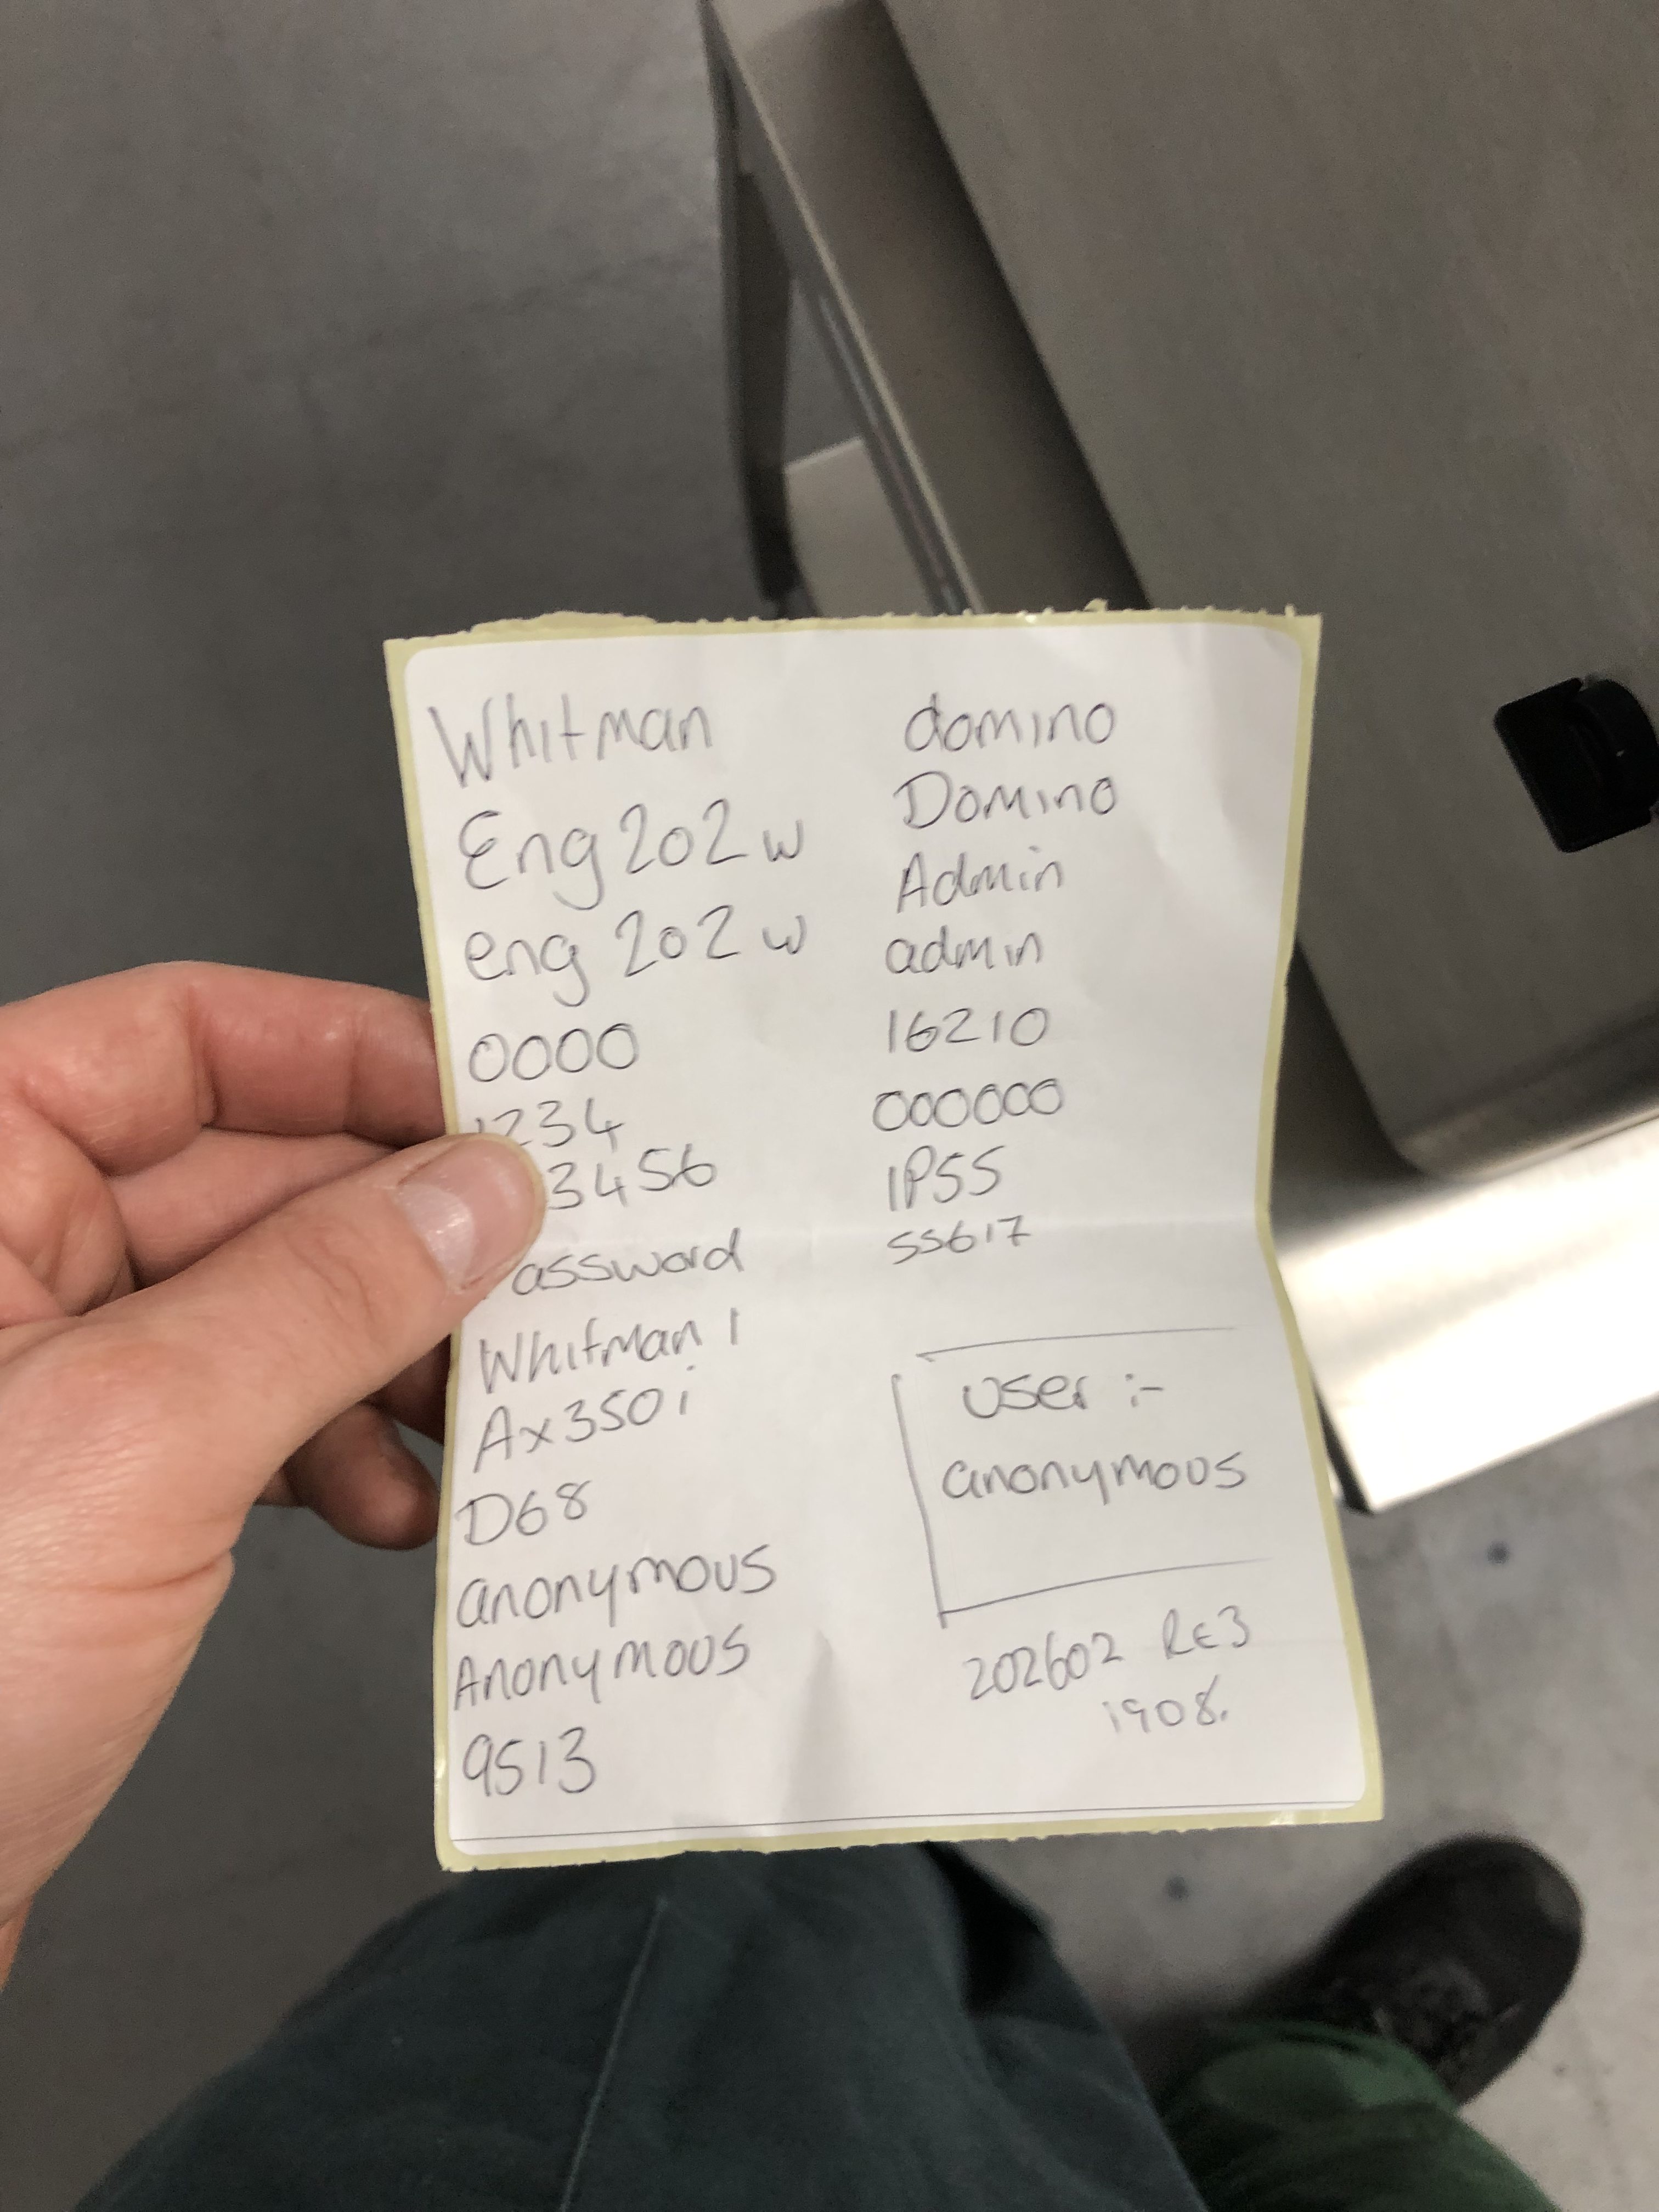 Whitman
Eng202w
eng202w
0000
1234
3456
assword
Whitman1
Ax350i
D68
anonymous
Anonymous
9513
domino
Domino
Admin
admin
16210
000000
IP55
55617
user :-
anonymous
202602 Rev3
1908.